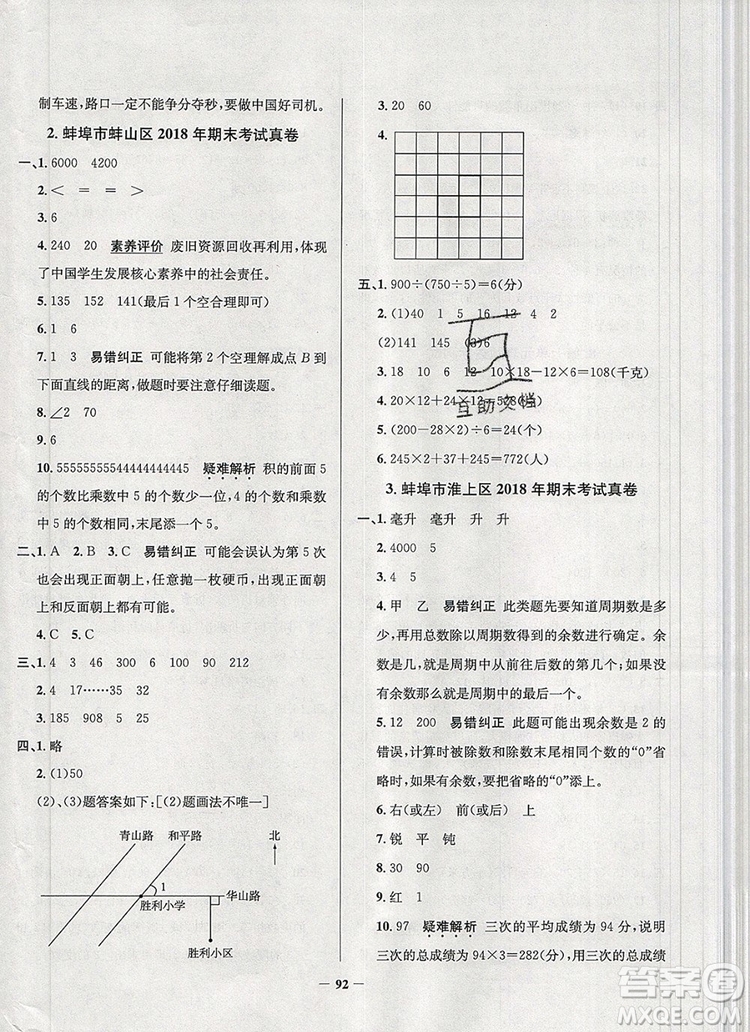 制车速,路口一定不能争分夺秒,要做中国好司机。
2. 蚌埠市蚌山区 2018 年期末考试真卷
一、1. 6000 4200
2. < = = >
3. 6
4. 240 20 素养评价 废旧资源回收再利用,体现
了中国学生发展核心素养中的社会责任。
5. 135 152 141(最后 1 个空合理即可)
6. 1 6
7. 1 3 易错纠正 可能将第 2 个空理解成点 B 到
下面直线的距离,做题时要注意仔细读题。
8. ∠2 70
9. 6
10. 55555555544444444445 疑难解析 积的前面 5
的个数比乘数中 5 的个数少一个,4 的个数与乘数中
5 的个数相同,末尾添一个 5。
二、1. A 2. B 3. C 易错纠正 可能会误认为第 5 次
也会出现正面朝上,任意抛一枚硬币,出现正面朝
上和反面朝上都有可能。
4. C 5. C
三、1. 4 3 46 300 100 90 212
2. 4 17……35 32
3. 185 908 5 25
四、1. 略
2. (1)50
(2)、(3)题答案如下:[(2)题画法不唯一]
青山路 和平路 北
1
华山路
胜利小学
胜利小区
3. 20 60
4.
五、1. 900÷(750÷5)=6(分)
2. (1)40 1 5 16 12 4 2
(2)141 145 (3)6
3. 18 10 8 12 10×18-12×6=108(千克)
4. 20×12+24×12=528(棵)
互助文档
5. (200-28×2)÷3=48(元)
6. 245×2+37+245=772(人)
3. 蚌埠市淮上区 2018 年期末考试真卷
一、1. 毫升 毫升 升 升
2. 4000 5
3. 4 5
4. 甲 乙 易错纠正 此类题先要知道周期数是多
少,再用总数除以周期数得到的余数进行确定。余
数是几,就是周期中从前往后数的第几个;如果没
有余数那么就是周期中的最后一个。
5. 12 200 易错纠正 此题可能出现余数是 2 的
错误,计算时被除数和除数末尾有“0”时可以省
略时,如果有余数,要把省略的“0”添上。
6. 右(或左) 前(或后) 上
7. 锐 平 钝
8. 30 90
9. 红 1
10. 97 疑难解析 三次的平均成绩为 94 分,说明
三次的总成绩为 94×3=282(分),用三次的总成绩
92
答案圈